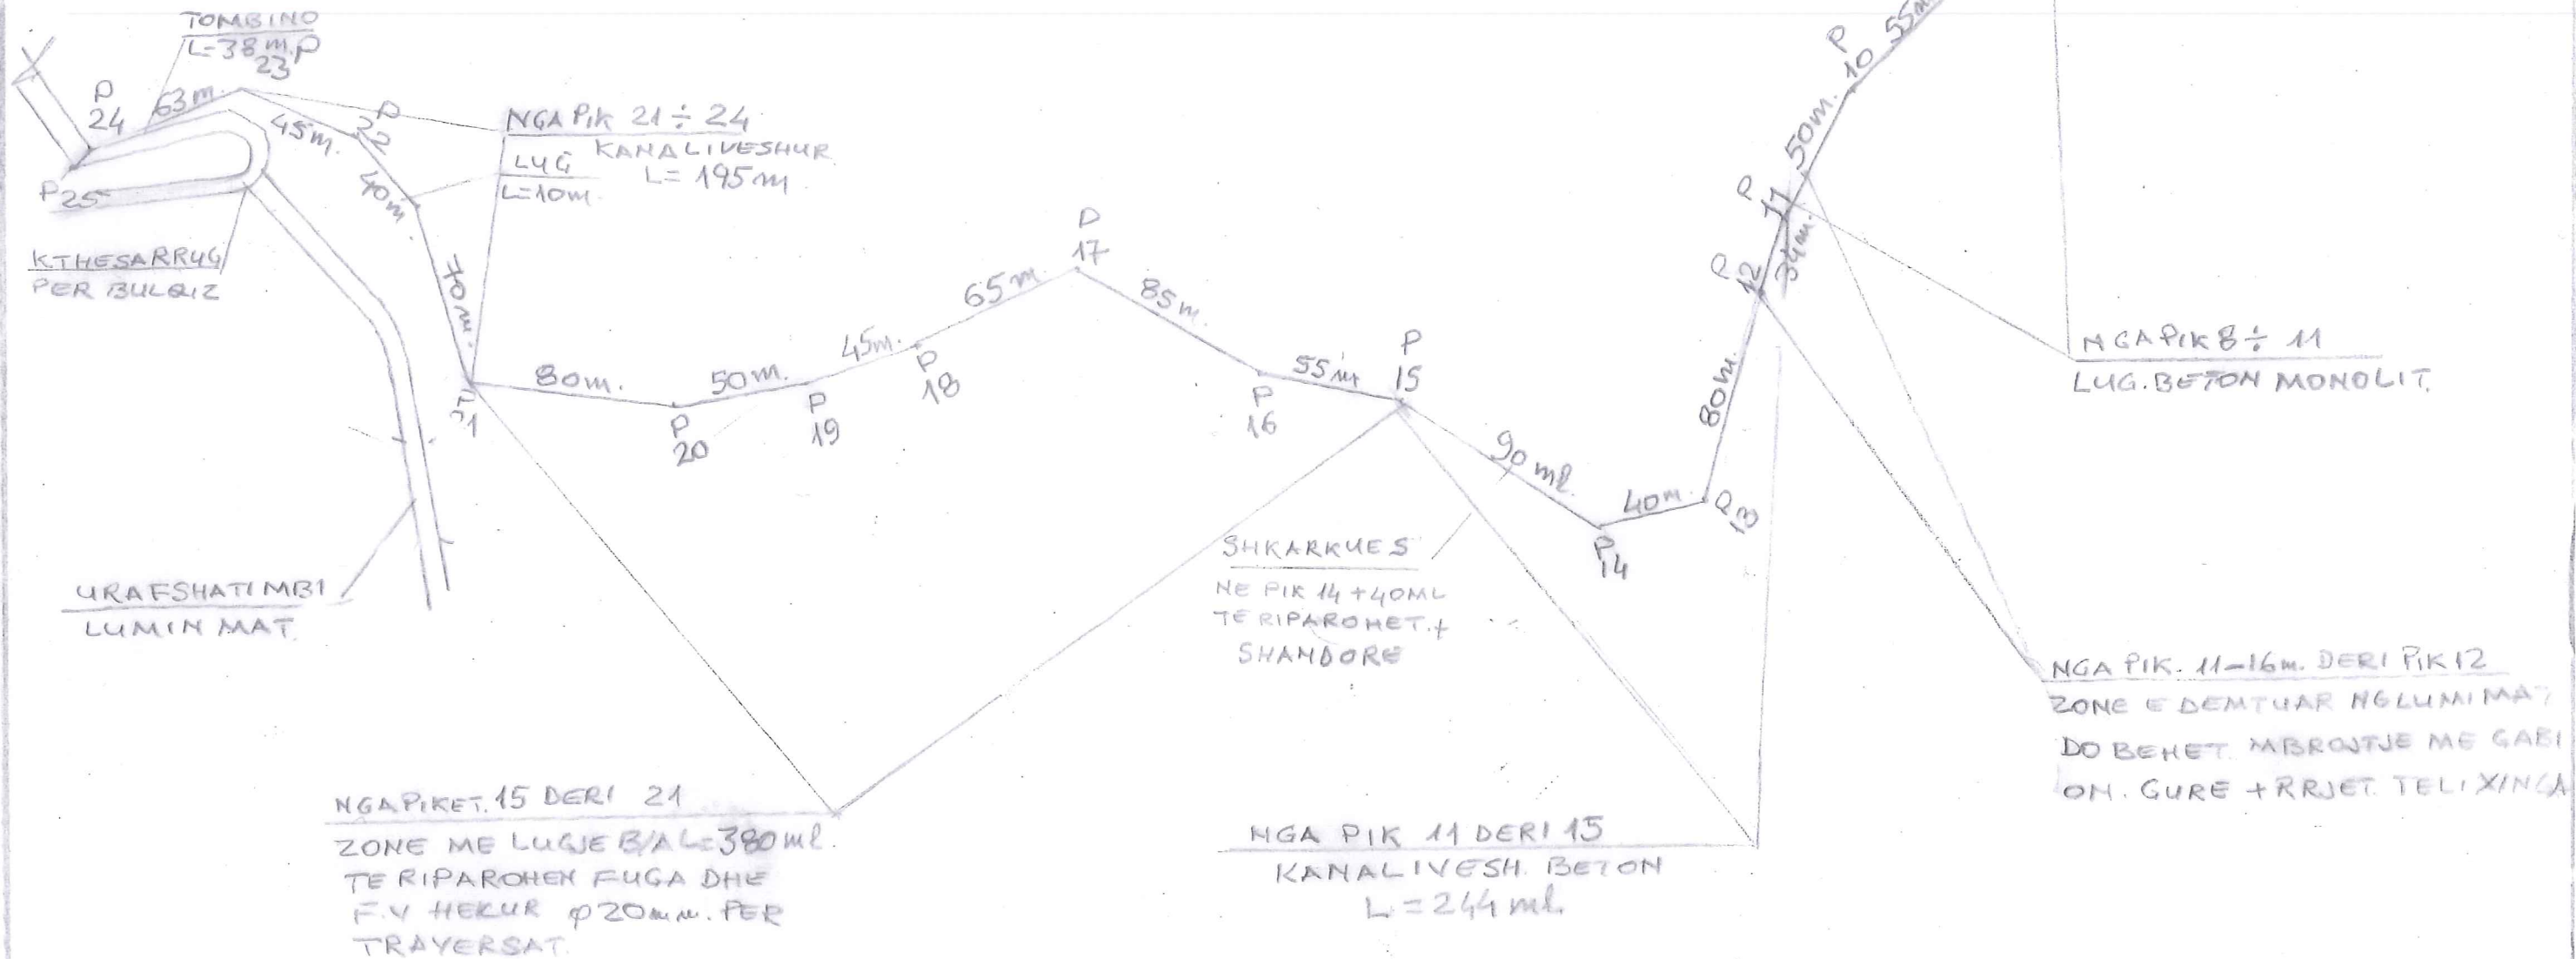 TOMBINO
L=38 m.
P
23
P
24
63m.
45m.
P
22
40m.
70m.
P25
KTHESA RRUG
PER BULQIZ
NGA PIK 21÷24
KANAL I VESHUR
L= 195m
LUG
L=10m.
URA FSHATI MBI
LUMIN MAT.
P
21
80m.
P
20
50m.
P
19
45m.
P
18
65m.
P
17
85m.
P
16
55m
P
15
90 ml.
P
14
40m.
P
13
80m.
P
12
34m.
P
11
50m.
P
10
55m
NGA PIK 8÷11
LUG. BETON MONOLIT.
SHKARKUES
NE PIK 14+40ML
TE RIPAROHET.+
SHANDORE
NGA PIK. 11-16m. DERI PIK 12
ZONE E DEMTUAR NG LUMI MAT
DO BEHET. MBROJTJE ME GABI
ON. GURE + RRJET. TELI XINGA
NGA PIKET. 15 DERI 21
ZONE ME LUGJE B/A L=380 ml.
TE RIPAROHEN FUGA DHE
F.V HEKUR φ20mm. PER
TRAVERSAT.
NGA PIK 11 DERI 15
KANAL I VESH. BETON
L=244 ml.